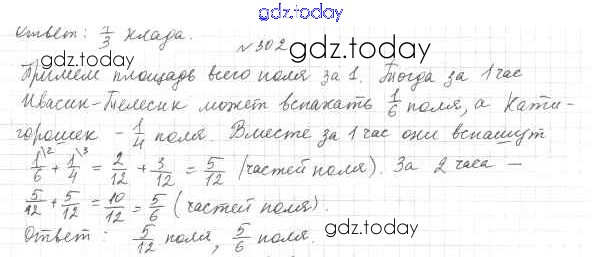 gdz.today
Ответ: 1/3 клада.
№ 302 gdz.today
Примем площадь всего поля за 1. Тогда за 1 час
gdz.today
Ивасик-Телесик может вспахать 1/6 поля, а Кати-
горошек - 1/4 поля. Вместе за 1 час они вспашут
1\2/6 + 1\3/4 = 2/12 + 3/12 = 5/12 (частей поля). За 2 часа –
5/12 + 5/12 = 10/12 = 5/6 (частей поля).
gdz.today
Ответ: 5/12 поля, 5/6 поля.
gdz.today